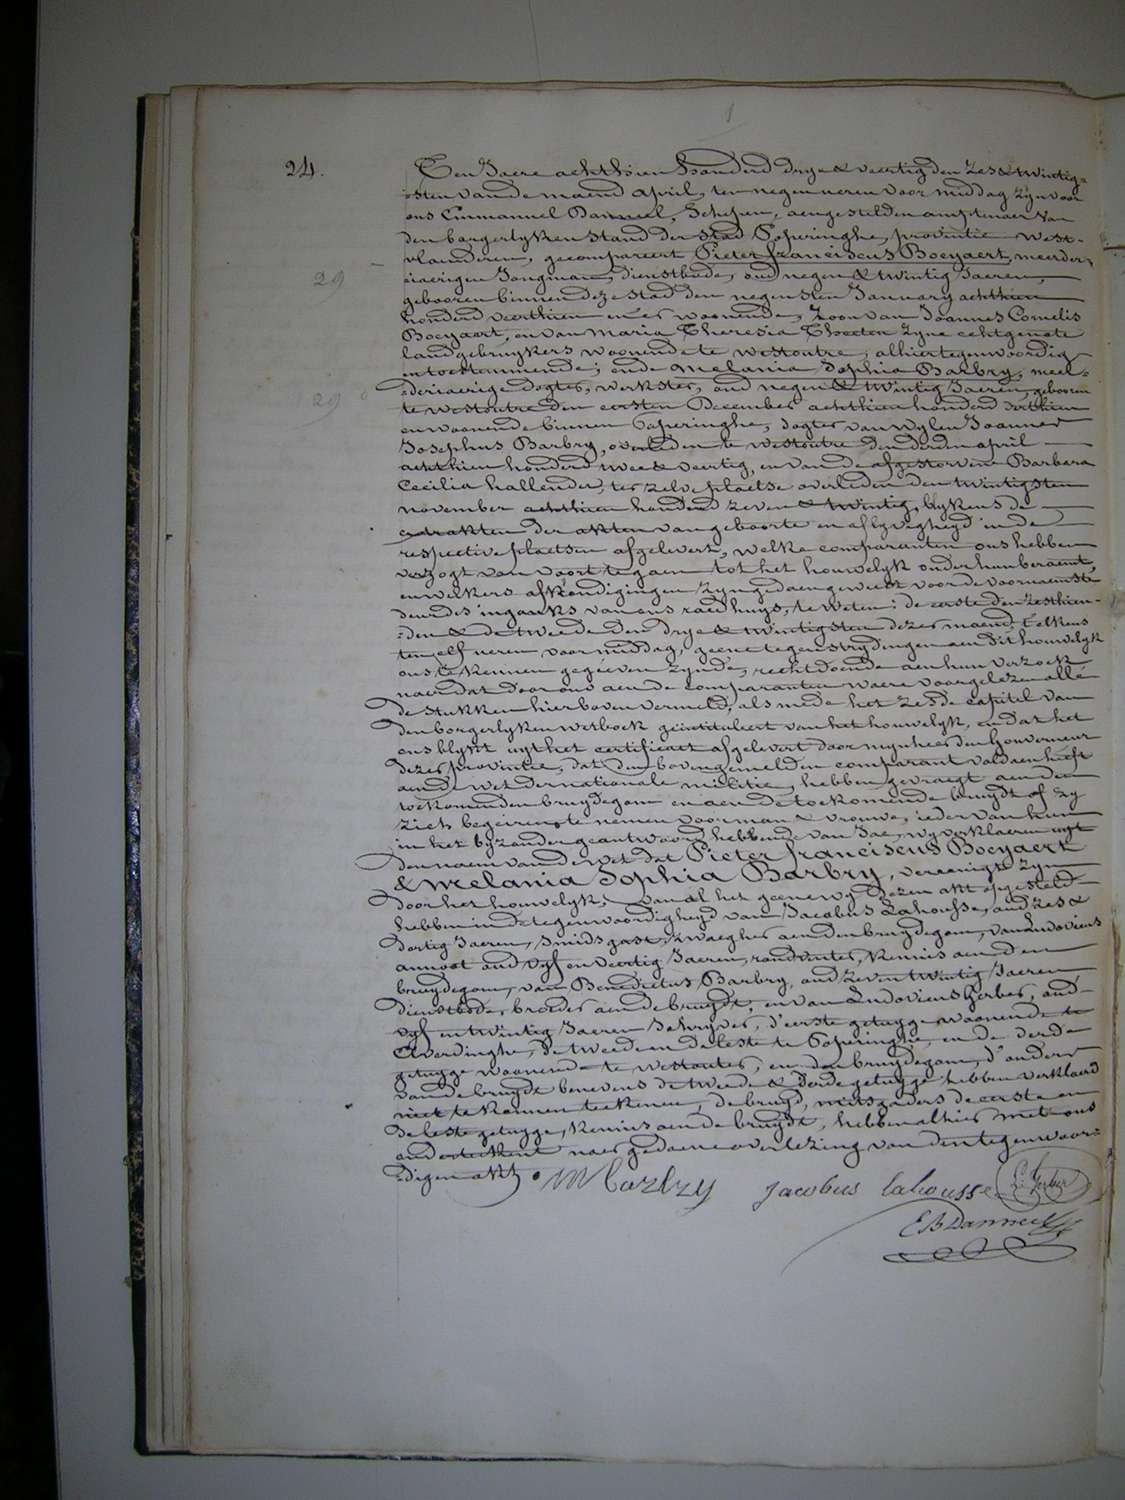 24.
Ten Jaere achthien honderd drye & veertig den zes & twintig=
=sten van de maend april, ten negen uren voor middag zyn voor
ons Emmanuel Danneel, Schepen, aengestelden amptenaer van
den borgerlyken stand der stad Poperinghe, provintie West-
vlaenderen, gecompareert Pieter franciscus Boeyaert, meerder-
29
jaerigen Jongman, dienstbode, oud negen & twintig Jaeren,
gebooren binnen deze stad den negensten January achthien
honderd veerthien en er woonende, zoon van Joannes Cornelis
Boeyaert, en van Maria Theresia Thoeten zyne echtgenote
landgebruykers woonende te westoutre, alhier tegenwoordig
en toestemmende; ende Melania Sophia Barbry, meer-
29
=derjaerige dogter, werkster, oud negen & twintig Jaeren, gebooren
te westoutre den eersten December achthien honderd derthien
en woonende binnen Poperinghe, dogter van wylen Joannes
Josephus Barbry, overleden te westoutre den derden april
achthien honderd twee & veertig, en van de afgestorvene Barbara
Cecilia hallender, ter zelve plaetse overleden den twintigsten
november achthien honderd zeven & twintig, blykens de
extrakten der akten van geboorte en aflyvigheyd in de
respective plaetsen afgelevert, welke comparanten ons hebben
verzogt van voort te gaen tot het houwelyk onder hun beraemt,
en welkers afkondigingen zyn gedaen geweest voor de voornaemste
deure des ingangs van ons raedhuys, te weten: de eerste den zesthien-
=den & de tweede den drye & twintigsten dezer maend, telkens
ten elf uren voor middag, geene tegenstrydingen aen dit houwelyk
ons te kennen gegeven zynde, recht doende aen hun verzoek,
naer dat door ons aen de comparanten waere voorgelezen alle
de stukken hier boven vermeld, als mede het zesde capitel van
den borgerlyken wetboek geintituleert van het houwelyk, en dat het
ons blykt uyt het certificaet afgelevert door mynheer den Gouverneur
dezer provintie, dat den bovengemelden comparant voldaen heeft
aen de wet der nationale militie, hebben gevraegt aen den
toekomenden bruydegom en aen de toekomende bruydt of zy
zich begeiren te nemen voor man & vrouwe, ieder van hun
in het byzonder geantwoord hebbende van Jae, wy verklaeren uyt
den naem van de wet dat Pieter franciscus Boeyaert
& Melania Sophia Barbry, vereenigt zyn
door het houwelyk; van al het geene wy dezen akt opgesteld
hebben in de tegenwoordigheyd van Jacobus Lahousse, oud zes &
dertig Jaeren, smids gast, zwaeger aen den bruydegom, van Ludovicus
annoot oud vyf en veertig Jaeren, landwerker, kennis aen den
bruydegom, van Benedictus Barbry, oud zeven twintig Jaeren,
dienstbode, broeder aen de bruydt, en van Ludovicus Gerber, oud
vyf en twintig Jaeren schryver, d'eerste getuyge woonende te
Elverdinghe, de tweede en de leste te Poperinghe, en de derde
getuyge woonende te westouter, en den bruydegom, d'ouders
van de bruydt benevens de tweede & derde getuyge hebben verklaerd
niet te konnen teekenen, de bruyd, mitsgaders de eerste en
de leste getuyge, kennis aen de bruydt, hebben alhier met ons
onderteekent naer gedaene overlezing van den tegenwoor=
=digen akt.
M Barbry Jacobus Lahousse L. Gerber
E B Danneel